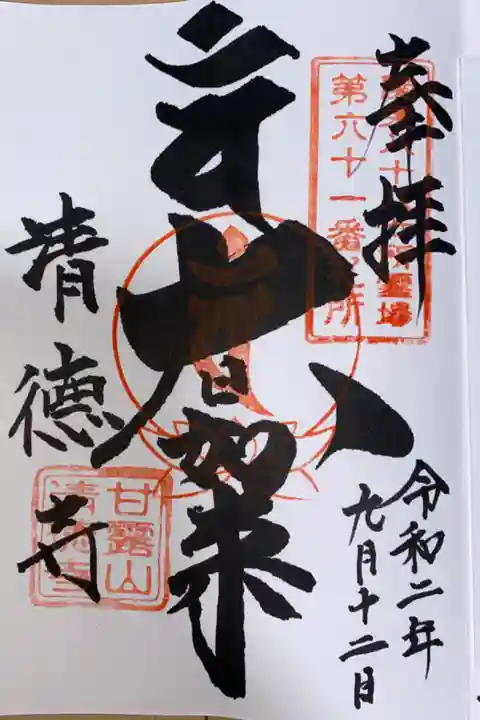 奉拝
第六十一番札所
令和二年
九月十二日
大日如来
清德寺
甘露山
清徳寺